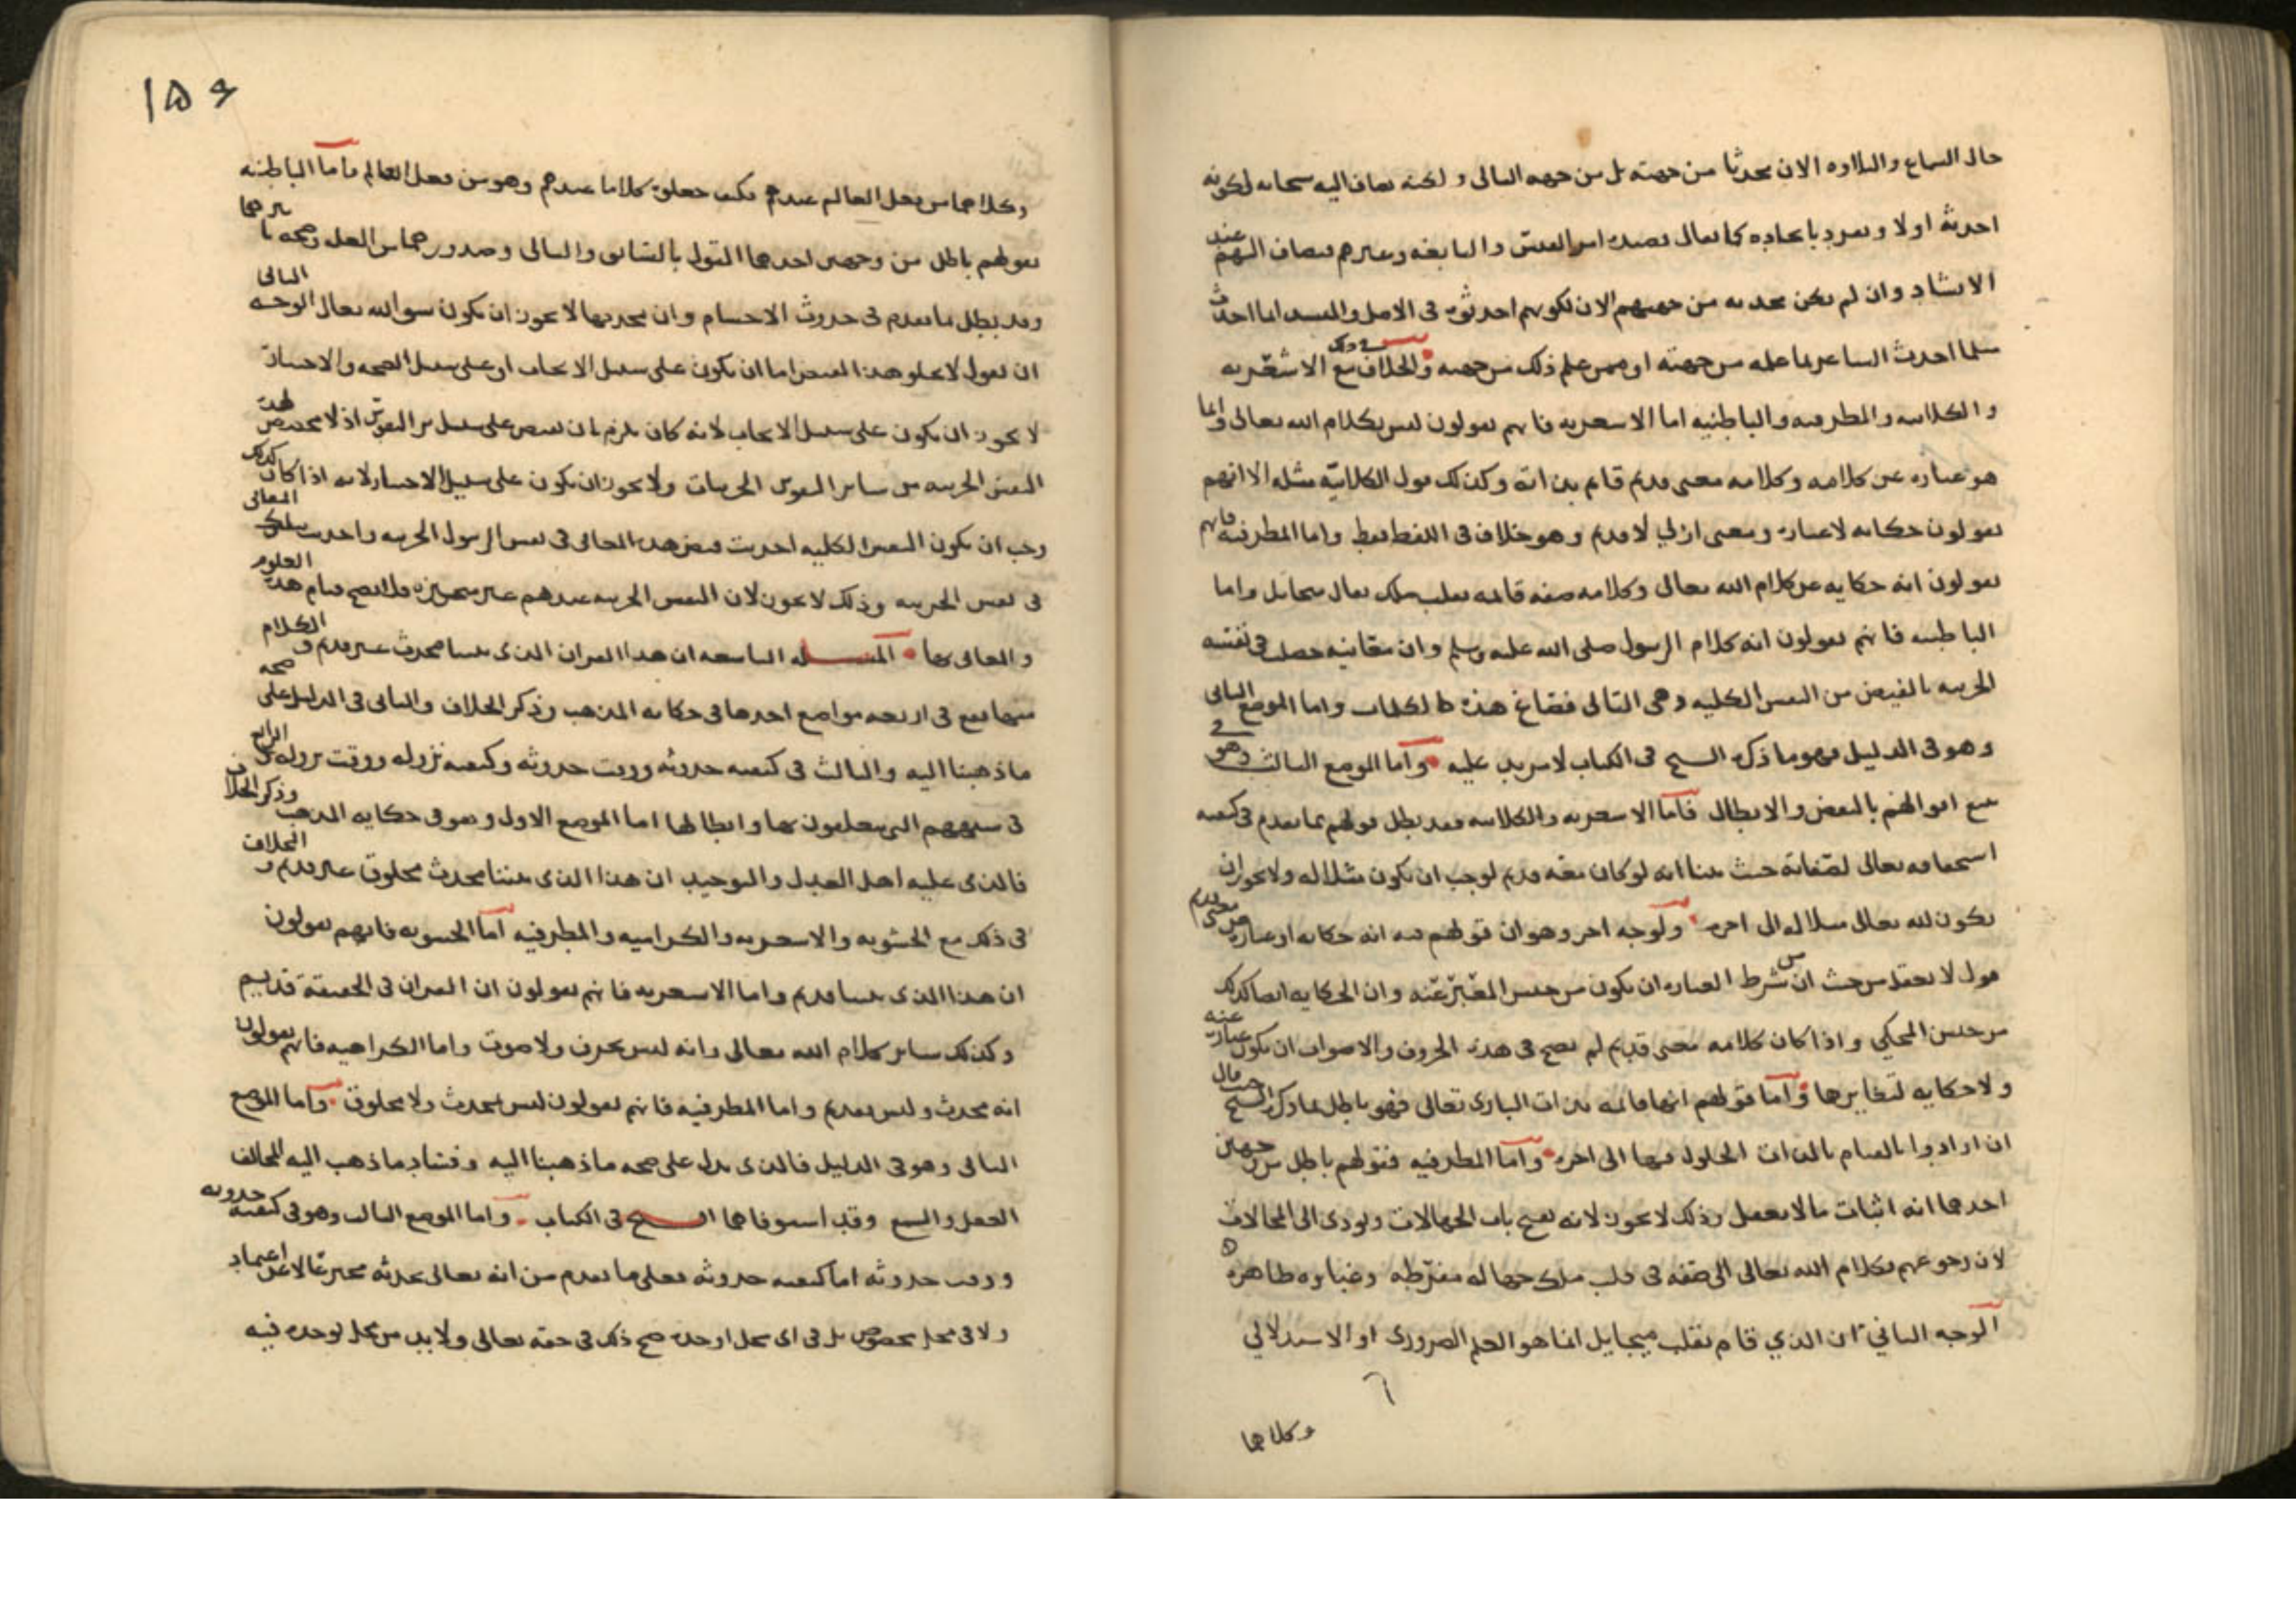 حال السماع والتلاوه الان محدثا من جهته بل من جهه التالي ولكنه يضاف اليه سبحانه لكونه
احدثه اولا وتفرد بايجاده كما يقال قصيده امرء القيس والنابغه وغيرهم فيضاف اليهم عند
الانشاد وان لم يكن محدثه من جهتهم الان لكونهم احدثوه في الاصل
مثلما احدث الشاعر بما علمه من جهته او ممن علم ذلك من جهته والخلاف في ذلك مع الاشعريه
والكلابيه والمطرفيه والباطنيه اما الاشعريه فانهم يقولون ليس بكلام الله تعالى وانما
هو عباره عن كلامه وكلامه معنى قديم قايم بذاته وكذلك قول الكلابيه مثله الا انهم
يقولون حكايه لا عباره ومعنى ازلي لا قديم وهو خلاف في اللفظ فقط واما المطرفيه فانهم
يقولون انه حكايه عن كلام الله تعالى وكلامه صفه قايمه بقلب ملك يقال ميخايل واما
الباطنيه فانهم يقولون انه كلام الرسول صلى الله عليه وسلم وان معانيه حصلت في نفسه
الجزييه بالفيض من النفس الكليه وهي التالي فصاغ هذه الكلمات واما الموضع الثاني
وهو في الدليل فهو ما ذكره الشيخ في الكتاب لا مزيد عليه واما الموضع الثالث وهو في
تتبع اقوالهم بالنقض والابطال فاما الاشعريه والكلابيه فقد بطل قولهم بما تقدم في كيفيه
استحقاقه تعالى لصفاته حيث بينا انه لو كان معه قديم لوجب ان يكون مثلا له ولا يجوز ان
يكون لله تعالى مثلا الى اخره ولوجه اخر وهو ان قولهم فيه انه حكايه او عباره عن معنى قديم
قول لا يعقل من حيث ان من شرط العباره ان يكون من جنس المعبر عنه وان الحكايه ايضا كذلك
من جنس المحكي واذا كان كلامه معنى قديم لم يصح في هذه الحروف والاصوات ان يكون عباره عنه
ولا حكايه لتغايرها واما قولهم انها قايمه بذات الباري تعالى فهو باطل بما ذكره الشيخ حيث قال
ان ارادوا بالقيام بالذات الحلول فيها الى اخره واما المطرفيه فقولهم باطل من وجهين
احدهما انه اثبات ما لا يعقل وذلك لا يجوز لانه يفتح باب الجهالات ويودي الى المحالات
لان رجوعهم بكلام الله تعالى الى صفه في قلب ملك جهاله مفرطه وغباوه ظاهره
الوجه الثاني ان الذي قام بقلب ميخايل انما هو العلم الضروري او الاستدلالي
وكلاهما
١٥٤
وكلاهما من فعل العالم عندهم فكيف جعلوه كلاما عندهم وهو من فعل العالم فاما الباطنيه
فقولهم باطل من وجهين احدهما القول بالسابق والتالي وصدورهما من العله
وقد بطل بما تقدم في حدوث الاجسام وان محدثها لا يجوز ان يكون سوى الله تعالى الوجه الثاني
ان نقول لا يخلو هذا الفيض اما ان يكون على سبيل الايجاب او على سبيل الصحه والاختيار
لا يجوز ان يكون على سبيل الايجاب لانه كان يلزم بان يفيض على سبيل ساير النفوس اذ لا مخصص لهذه
النفس الجزييه من ساير النفوس الجزييات ولا يجوز ان يكون على سبيل الاختيار لانه اذا كان كذلك
وجب ان يكون النفس الكليه احدثت فيض هذه المعاني في نفس الرسول الجزييه واحدث تلك المعاني
في نفس الجزييه وذلك لا يجوز لان النفس الجزييه عندهم غير متحيزه فلا يصح قيام هذه العلوم
والمعاني بها المسئله التاسعه ان هذا القران الذي بيننا محدث غير قديم والكلام
منها يقع في اربعه مواضع احدها في حكايه المذهب وذكر الخلاف والثاني في الدليل على صحه
ما ذهبنا اليه والثالث في كيفيه حدوثه ووقت حدوثه وكيفيه نزوله ووقت نزوله الرابع
في شبههم التي يتعلقون بها وابطالها اما الموضع الاول وهو في حكايه المذهب وذكر الخلاف
فالذي عليه اهل العدل والتوحيد ان هذا الذي بيننا محدث مخلوق غير قديم والخلاف
في ذلك مع الحشويه والاشعريه والكراميه والمطرفيه اما الحشويه فانهم يقولون
ان هذا الذي بيننا قديم واما الاشعريه فانهم يقولون ان القران في الحقيقه قديم
وكذلك ساير كلام الله تعالى وانه ليس بحرف ولا صوت واما الكراميه فانهم يقولون
انه محدث وليس بقديم واما المطرفيه فانهم يقولون ليس بمحدث ولا مخلوق واما الموضع
الثاني وهو في الدليل فالذي يدل على صحه ما ذهبنا اليه وفساد ما ذهب اليه المخالف
العقل والسمع وقد استوفاهما الشيخ في الكتاب واما الموضع الثالث وهو في كيفيه حدوثه
ووقت حدوثه اما كيفيه حدوثه فعلى ما تقدم من انه تعالى يحدثه مخترعا لا عن اعتماد
ولا في محل مخصوص بل في اي محل اوجده صح ذلك في حقه تعالى ولا بد من محل يوجده فيه